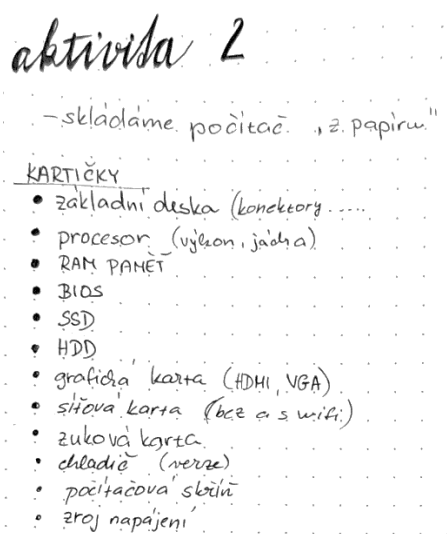 aktivita 2
- skládáme počítač "z papíru"
KARTIČKY
• základní deska (konektory.....
• procesor (výkon, jádra)
• RAM PAMĚŤ
• BIOS
• SSD
• HDD
• grafická karta (HDMI, VGA)
• síťová karta (bez a s wifi)
• zuková karta
• chladič (verze)
• počítačová skříň
• zroj napájení